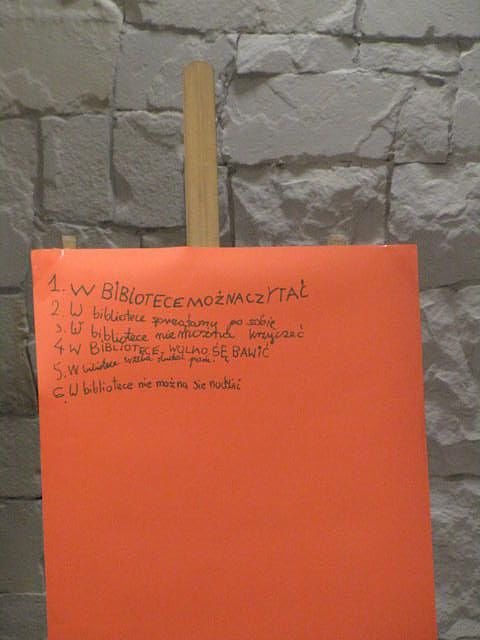 1. W BIBLOTECE MOŻNA CZYTAĆ
2. W bibliotece sprzątamy po sobie
3. W bibliotece nie można krzyczeć
4 W BIBLIOTECE WOLNO SĘ BAWIĆ
5. W bibliotece trzeba słuchać pani.
6. W bibliotece nie można sie nudzić